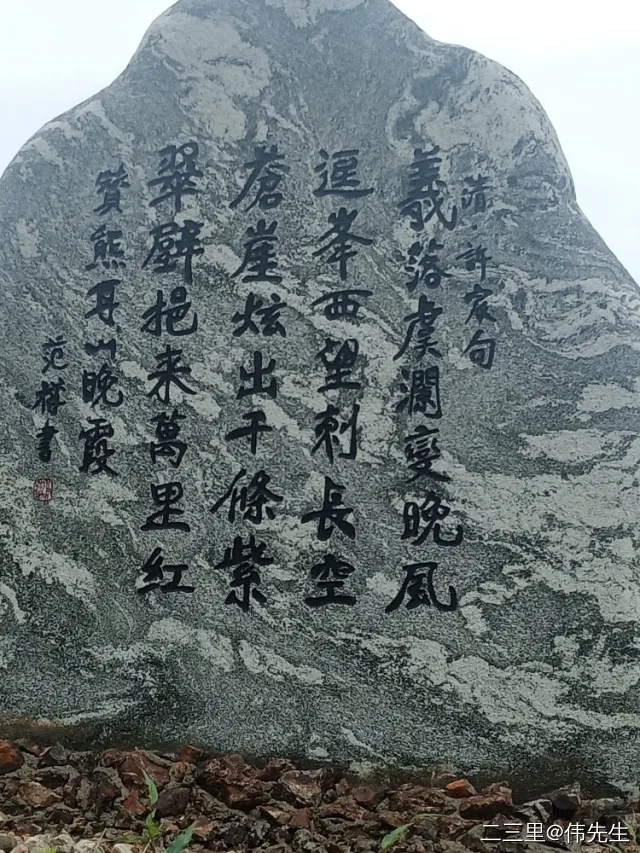 清·許宸句
羲落虞瀾變晚風
峯西望刺長空
蒼崖炫出千條紫
翠壁挹来萬里紅
贊熊耳山晚霞
范書
二三里@伟先生